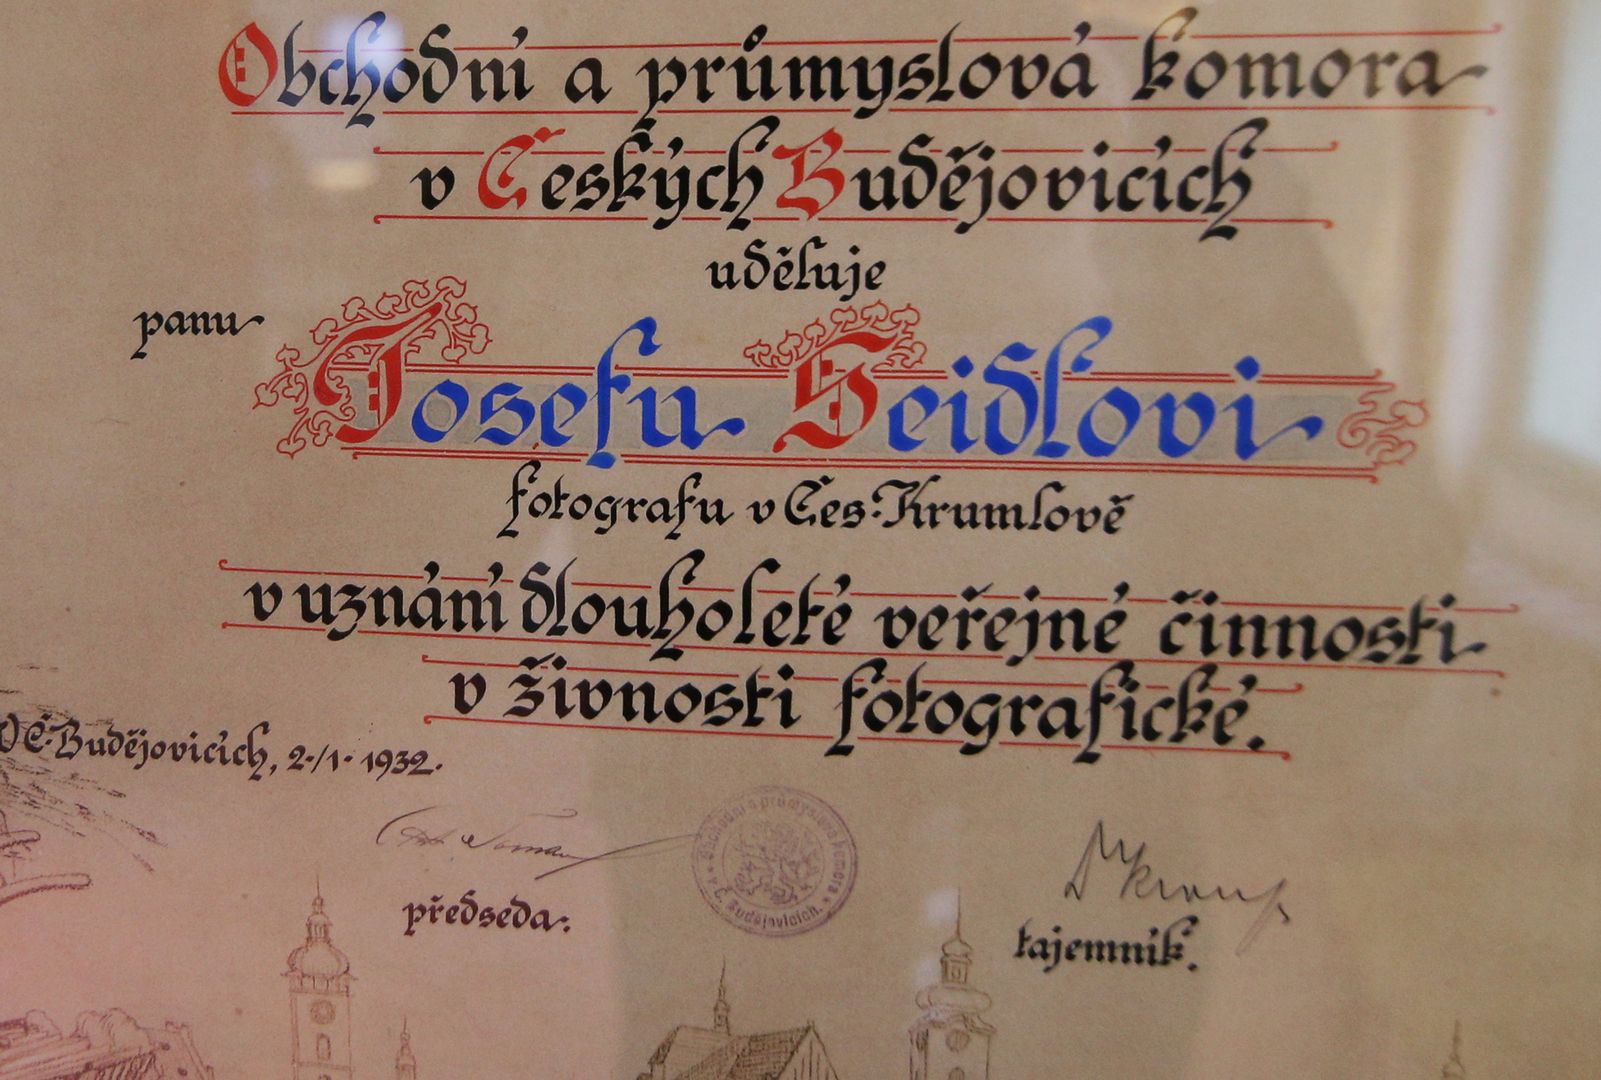 Obchodní a průmyslová komora
v Českých Budějovicích
uděluje
panu
Josefu Seidlovi
fotografu v Čes: Krumlově
v uznání dlouholeté veřejné činnosti
v živnosti fotografické.
V Č. Budějovicích, 2./1. 1932.
předseda:
Obchodní a průmyslová komora
v Č. Budějovicích.
tajemník.